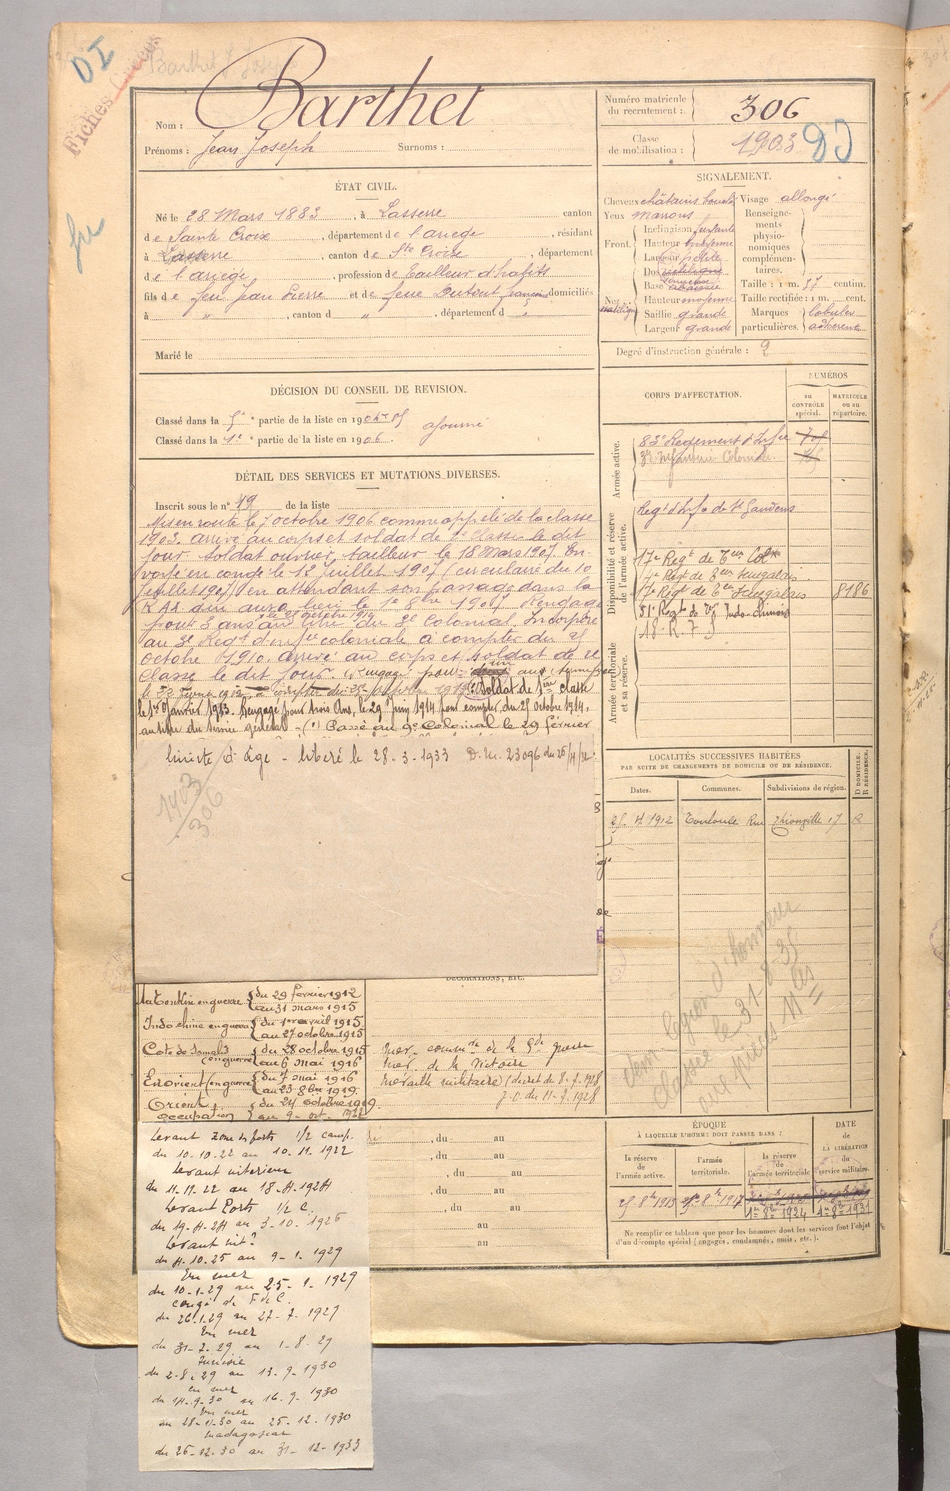 DI
Fiches
Barthet J Joseph
Nom : Barthet
Prénoms : Jean Joseph Surnoms :
Numéro matricule du recrutement : 306
Classe de mobilisation : 1903 DI
ÉTAT CIVIL.
Né le 28 Mars 1883, à Lasserre canton
de Sainte Croix, département de l'ariège, résidant
à Lasserre, canton de Ste Croix, département
de l'ariège, profession de tailleur d'habits
fils de feu Jean Pierre et de feue Dutout françoise domiciliés
à " , canton d " , département d "
Marié le
SIGNALEMENT.
Cheveux châtains Visage allongé
Yeux marrons Renseignements physionomiques complémentaires.
Front. Inclinaison fuyante
Hauteur moyenne
Largeur petite
Nez Dos rectiligne
Base abaissée
Hauteur moyenne
Saillie grande
Largeur grande
Taille : 1 m. 57 centim.
Taille rectifiée : 1 m. cent.
Marques particulières. lobules adhérents
Degré d'instruction générale : 2
DÉCISION DU CONSEIL DE REVISION.
Classé dans la 5e partie de la liste en 1904 et 05 ajourné
Classé dans la 1e partie de la liste en 1906.
DÉTAIL DES SERVICES ET MUTATIONS DIVERSES.
Inscrit sous le n° 49 de la liste
Mis en route le 7 octobre 1906 comme appelé de la classe
1903. arrivé au corps et soldat de 2e classe le dit
jour. Soldat ouvrier, tailleur le 18 Mars 1907. En-
voyé en congé le 12 juillet 1907 (circulaire du 10
juillet 1907) en attendant son passage dans la
R.A.A. qui aura lieu le 1er 8bre 1907. Rengagé
pour 3 ans le 25 octobre 1910 au titre du 3e Colonial. Incorporé
au 3e Regt d'infie coloniale à compter du 25
octobre 1910. arrivé au corps et soldat de 2e
classe le dit jour. Rengagé pour un an
Soldat de 1ère classe
le 1er Janvier 1913. Rengagé pour trois Ans, le 29 Juin 1914 pour compter du 25 octobre 1914,
au titre du service général - (1) Passé au 9e Colonial le 29 février
limite d'âge - libéré le 28-3-1933 D.M. 23096
1903
306
CORPS D'AFFECTATION.
NUMÉROS
au CONTRÔLE spécial.
MATRICULE ou au répertoire.
Armée active.
83e Regiment d'Infie
3e Infanterie Coloniale.
Disponibilité et réserve de l'armée active.
Regt d'Infie de St Gaudens
17e Regt de Teurs Colx
4e Regt de Teurs Sénégalais
17e Regt de Teurs Sénégalais 8186
51e Regt de Indo-Chinois
18. R. T S
Armée territoriale et sa réserve.
LOCALITÉS SUCCESSIVES HABITÉES
PAR SUITE DE CHANGEMENTS DE DOMICILE OU DE RÉSIDENCE.
Dates. Communes. Subdivisions de région. D DOMICILE. R RÉSIDENCE.
1912 Toulouse Rue Thionville 17 R
Légion d'honneur
classée le 31-8-35
DÉCORATIONS, ETC.
Au Tonkin en guerre du 29 février 1912
au 31 mars 1915
Indochine en guerre du 1er avril 1915
au 27 octobre 1915
Cote de Somalis en guerre du 28 octobre 1915
au 6 mai 1916
En Orient (en guerre) du 7 mai 1916
au 23 8bre 1919.
Orient occupation du 24 octobre 1919
au 9 oct. 1922
Med. commve de la Gde guerre
Med. de la Victoire
Médaille militaire (décret de 8-7-1928
J.O. du 11-7-1928
Levant zone des ports 1/2 camp.
du 10.10.22 au 10.11.1922
Levant intérieur
du 11.11.22 au 18.4.1924
Levant Ports 1/2 C.
du 19-4-24 au 3-10.1925
Levant int?
du 4.10.25 au 9-1.1929
En mer
du 10-1-29 au 25.1.1929
congé de F. de C.
du 26.1.29 au 27-7.1929
En mer
du 31-7.29 au 1-8.29
Tunisie
du 2-8.29 au 13.9.1930
en mer
du 14-9-30 au 16.9.1930
En mer
au 28-11-30 au 25.12.1930
Madagascar
du 26-12.30 au 31-12-1933
, du au
, du au
, du au
, du au
, du au
au
au
ÉPOQUE
À LAQUELLE L'HOMME DOIT PASSER DANS :
la réserve de l'armée active. l'armée territoriale. la réserve de l'armée territoriale
DATE de LA LIBÉRATION du service militaire.
25 8bre 1913 25-8bre 1917
1er 8bre 1924 1er 8bre 1931
Ne remplir ce tableau que pour les hommes dont les services font l'objet
d'un décompte spécial (engagés, condamnés, omis, etc.).